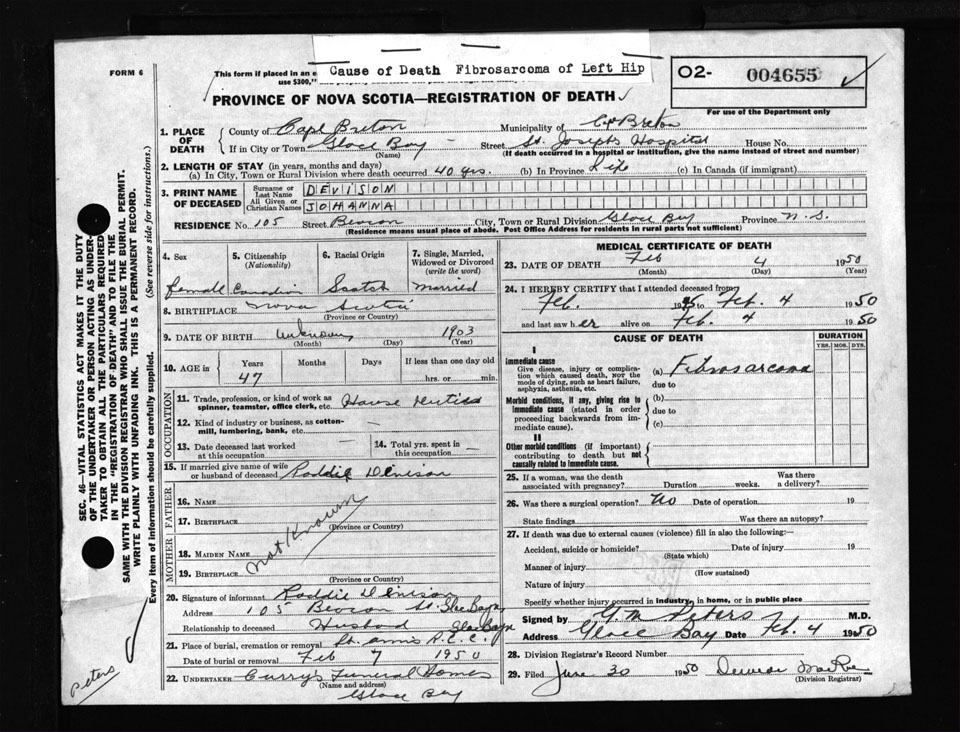 Cause of Death Fibrosarcoma of Left Hip
FORM 6
This form if placed in an e
use $300,"
O2- 004655
For use of the Department only
PROVINCE OF NOVA SCOTIA—REGISTRATION OF DEATH
1. PLACE OF DEATH
County of Cape Breton Municipality of C. Breton
If in City or Town Glace Bay Street St. Joseph Hospital House No.
(Name) (If death occurred in a hospital or institution, give the name instead of street and number)
2. LENGTH OF STAY (in years, months and days)
(a) In City, Town or Rural Division where death occurred 40 yrs. (b) In Province Life (c) In Canada (if immigrant)
3. PRINT NAME OF DECEASED
Surname or Last Name DEVISON
All Given or Christian Names JOHANNA
RESIDENCE No. 105 Street Beacon City, Town or Rural Division Glace Bay Province N.S.
(Residence means usual place of abode. Post Office Address for residents in rural parts not sufficient)
4. Sex
female
5. Citizenship (Nationality)
Canadian
6. Racial Origin
Scotch
7. Single, Married, Widowed or Divorced (write the word)
married
8. BIRTHPLACE Nova Scotia
(Province or Country)
9. DATE OF BIRTH unknown 1903
(Month) (Day) (Year)
10. AGE in Years Months Days If less than one day old
47 hrs. or min.
OCCUPATION
11. Trade, profession or kind of work as spinner, teamster, office clerk, etc. House duties
12. Kind of industry or business, as cotton-mill, lumbering, bank, etc. —
13. Date deceased last worked at this occupation —
14. Total yrs. spent in this occupation —
15. If married give name of wife or husband of deceased Roddie Devison
FATHER
16. NAME
17. BIRTHPLACE
(Province or Country)
not known
MOTHER
18. MAIDEN NAME
19. BIRTHPLACE
(Province or Country)
20. Signature of informant Roddie Devison
Address 105 Beacon St. Glace Bay
Relationship to deceased Husband Glace Bay
21. Place of burial, cremation or removal St. Anns R.C.C.
Date of burial or removal Feb 7 1950
22. UNDERTAKER Currys Funeral Homes
(Name and address)
Glace Bay
MEDICAL CERTIFICATE OF DEATH
23. DATE OF DEATH Feb 4 1950
(Month) (Day) (Year)
24. I HEREBY CERTIFY that I attended deceased from
Feb. 19 Feb. 4 1950
and last saw her alive on Feb. 4 1950
CAUSE OF DEATH
DURATION
YRS. MOS. DYS.
I
Immediate cause
Give disease, injury or complication which caused death, NOR the mode of dying, such as heart failure, asphyxia, asthenia, etc.
(a) Fibrosarcoma
due to
Morbid conditions, if any, giving rise to immediate cause (stated in order proceeding backwards from immediate cause).
(b)
due to
(c)
II
Other morbid conditions (if important) contributing to death but not causally related to immediate cause.
25. If a woman, was the death associated with pregnancy? Duration weeks. Was there a delivery?
26. Was there a surgical operation? No Date of operation 19
State findings Was there an autopsy?
27. If death was due to external causes (violence) fill in also the following:—
Accident, suicide or homicide? Date of injury 19
(State which)
Manner of injury
(How sustained)
Nature of injury
Specify whether injury occurred in industry, in home, or in public place
Signed by G.M. Peters M.D.
Address Glace Bay Date Feb. 4 1950
28. Division Registrar's Record Number
29. Filed June 30 1950
(Division Registrar)
SEC. 46—VITAL STATISTICS ACT MAKES IT THE DUTY
OF THE UNDERTAKER OR PERSON ACTING AS UNDERTAKER
TO OBTAIN ALL THE PARTICULARS REQUIRED
IN THE "REGISTRATION OF DEATH" AND TO FILE THE
SAME WITH THE DIVISION REGISTRAR WHO SHALL ISSUE THE BURIAL PERMIT.
WRITE PLAINLY WITH UNFADING INK. THIS IS A PERMANENT RECORD.
Every item of information should be carefully supplied. (See reverse side for instructions.)
Peters